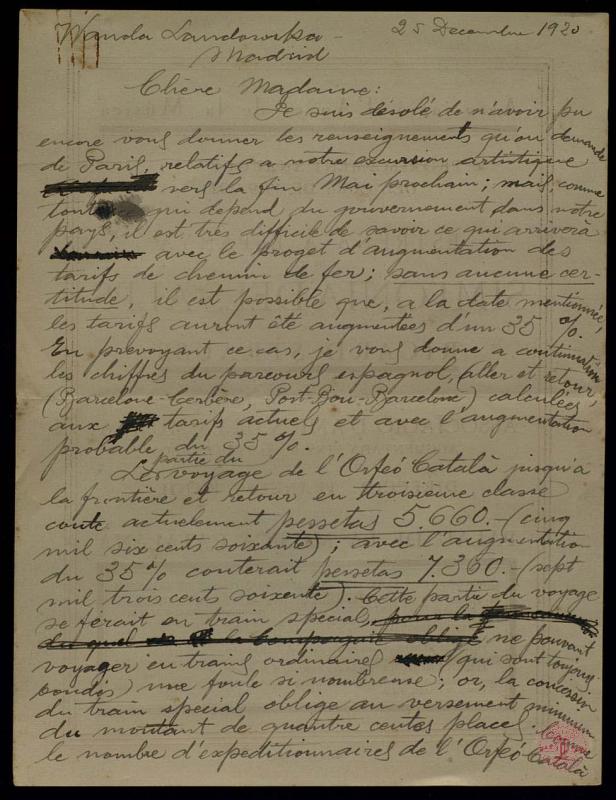 Wanda Landowska - 25 Decembre 1920
Madrid
Chère Madame:
Je suis désolé de n'avoir pu
encore vous donner les renseignements qu'on demande
de Paris, relatifs a notre excursion artistique
vers la fin Mai prochain; mais, comme
tout qui depend du gouvernement dans notre
pays, il est très difficile de savoir ce qui arrivera
avec le proget d'augmentation des
tarifs de chemin de fer; sans aucune cer-
titude, il est possible que, a la date mentionnée,
les tarifs auront été augmentées d'un 35 %.
En prevoyant ce cas, je vous donne a continuation
les chiffres du parcours espagnol, aller et retour,
(Barcelone-Cerbère, Port-Bou-Barcelone) calculées
aux tarifs actuels et avec l'augmentation
probable du 35 %.
partie du
Le voyage de l'Orfeó Català jusqu'a
la frontière et retour en troisième classe
coute actuelement pessetas 5.660.- (cinq
mil six cents soixante); avec l'augmentation
du 35% couterait pessetas 7.360.- (sept
mil trois cents soixente). Cette partie du voyage
se ferait en train special, pour la
du quel la Compagnie oblige ne pouvant
voyager en trains ordinaires (qui sont toujours
bondés) une foule si nombreuse; or, la concession
du train special oblige au versement minimum
du montant de quantre centes places. Comme
le nombre d'expeditionnaires de l'Orfeó Català